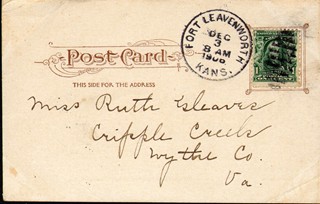 FORT LEAVENWORTH
DEC
3
8 AM
1906
KANS.
Post Card
THIS SIDE FOR THE ADDRESS
Miss Ruth Gleaves
Cripple Creek
Wythe Co.
Va.